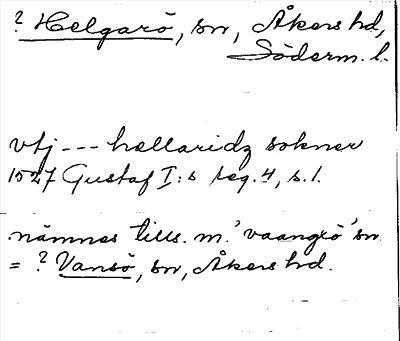 ? Helgarö, sn, Åkers hd,
Söderm. l.
vtj --- hellaridz sokner
1527 Gustaf I:s reg. 4, s. 1.
nämnes tills. m. 'vaangxö' sn
= ? Vansö, sn, Åkers hd.